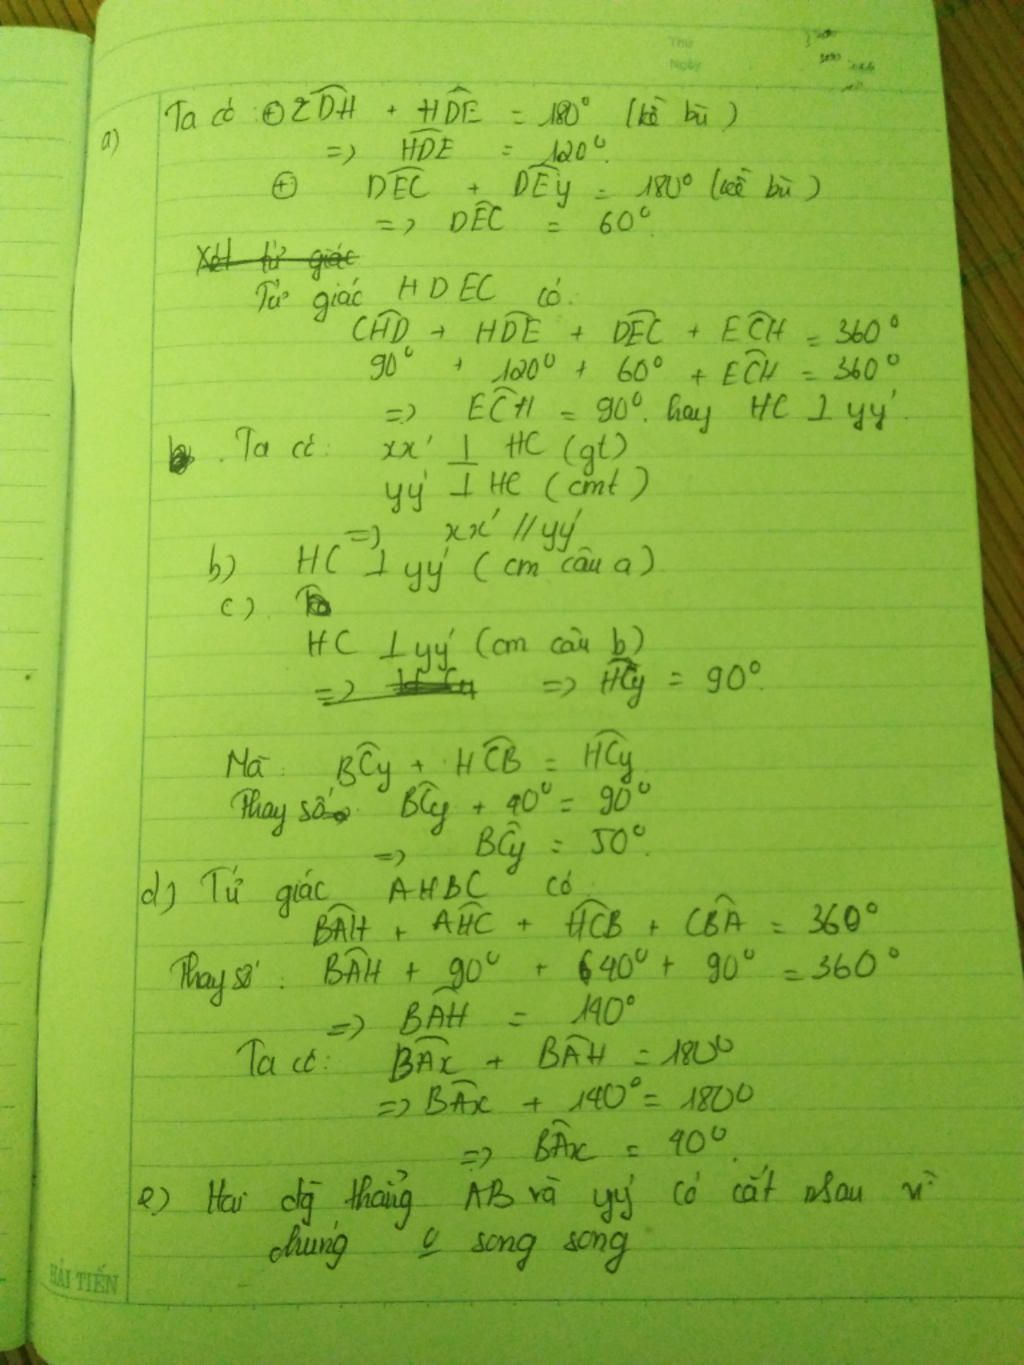 Thứ
Ngày
a) Ta có ⊕ zDH + HDE = 180° (kề bù)
=> HDE = 120°.
⊕ DEC + DEy = 180° (kề bù)
=> DEC = 60°.
Xét tứ giác
Tứ giác HDEC có:
CHD + HDE + DEC + ECH = 360°
90° + 120° + 60° + ECH = 360°
=> ECH = 90°. hay HC ⊥ yy'.
Ta có: xx' ⊥ HC (gt)
yy' ⊥ HC (cmt)
=> xx' // yy'
b) HC ⊥ yy' (cm câu a)
c)
HC ⊥ yy' (cm câu b)
=> => HCy = 90°.
Mà: BCy + HCB = HCy
Thay số BCy + 40° = 90°
=> BCy = 50°.
d) Tứ giác AHBC có:
BAH + AHC + HCB + CBA = 360°
Thay số: BAH + 90° + 40° + 90° = 360°
=> BAH = 140°
Ta có: BAx + BAH = 180°
=> BAx + 140° = 180°
=> BAx = 40°.
e) Hai đg thẳng AB và yy' có cắt nhau vì
chúng song song
HẢI TIẾN